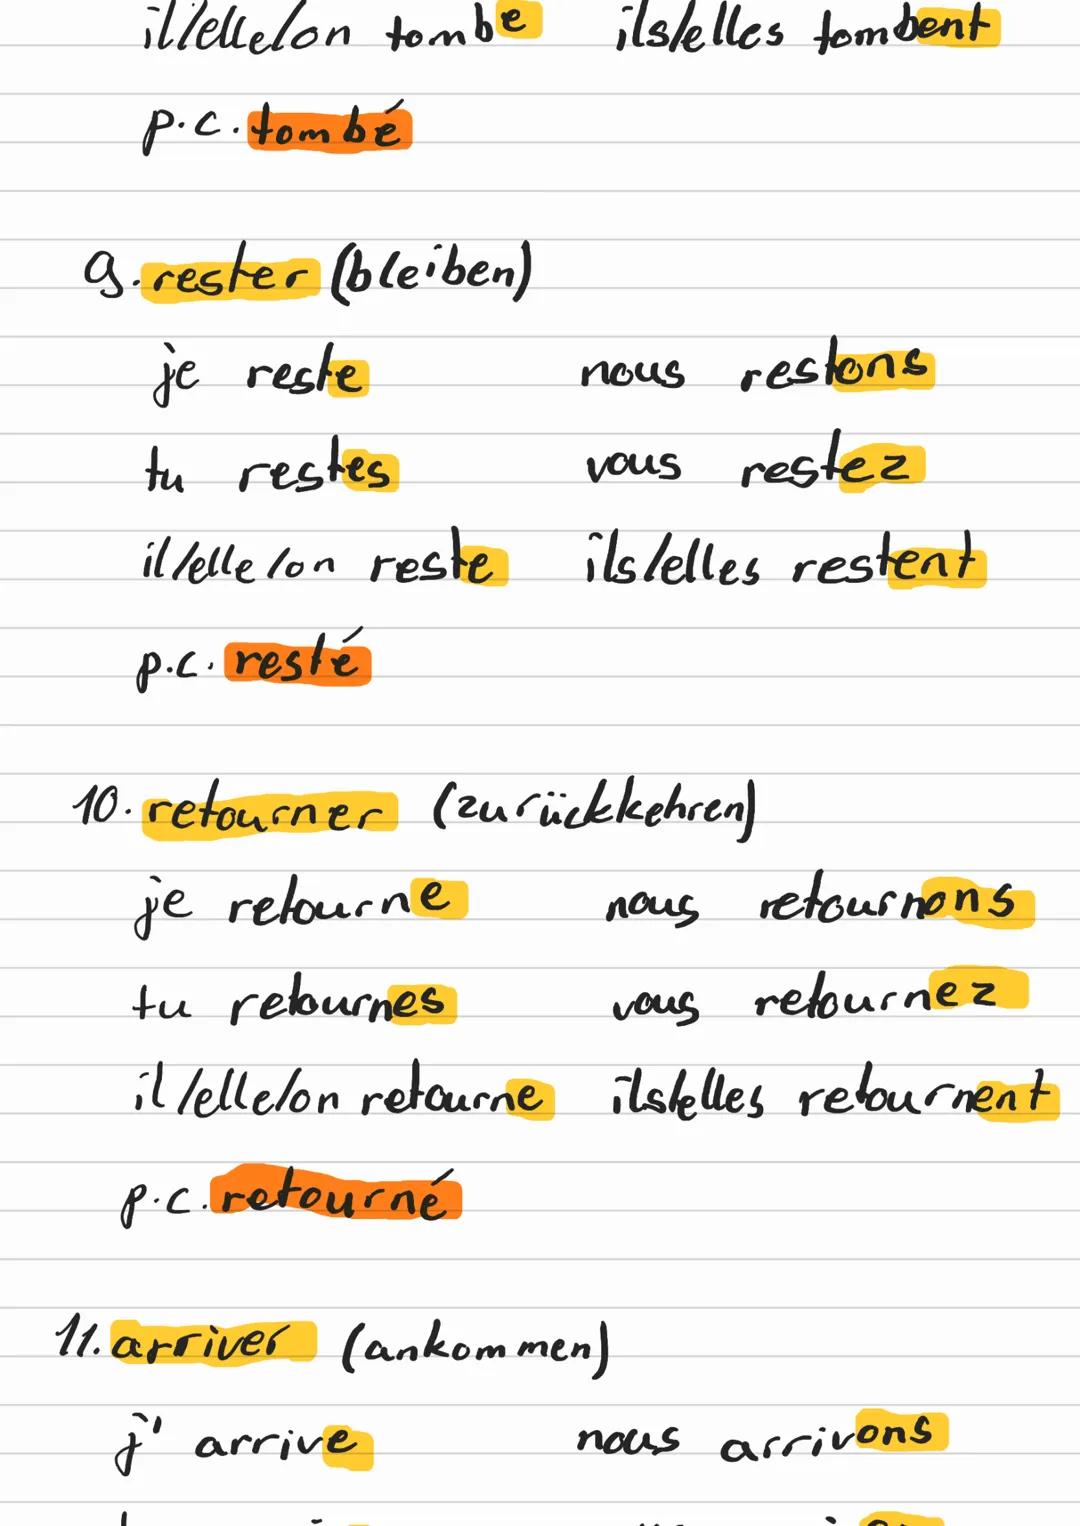 il/elle/on tombe ils/elles tombent
p.c. tombé
9. rester (bleiben)
je reste nous restons
tu restes vous restez
il/elle/on reste ils/elles restent
p.c. resté
10. retourner (zurückkehren)
je retourne nous retournons
tu retournes vous retournez
il/elle/on retourne ils/elles retournent
p.c. retourné
11. arriver (ankommen)
j' arrive nous arrivons